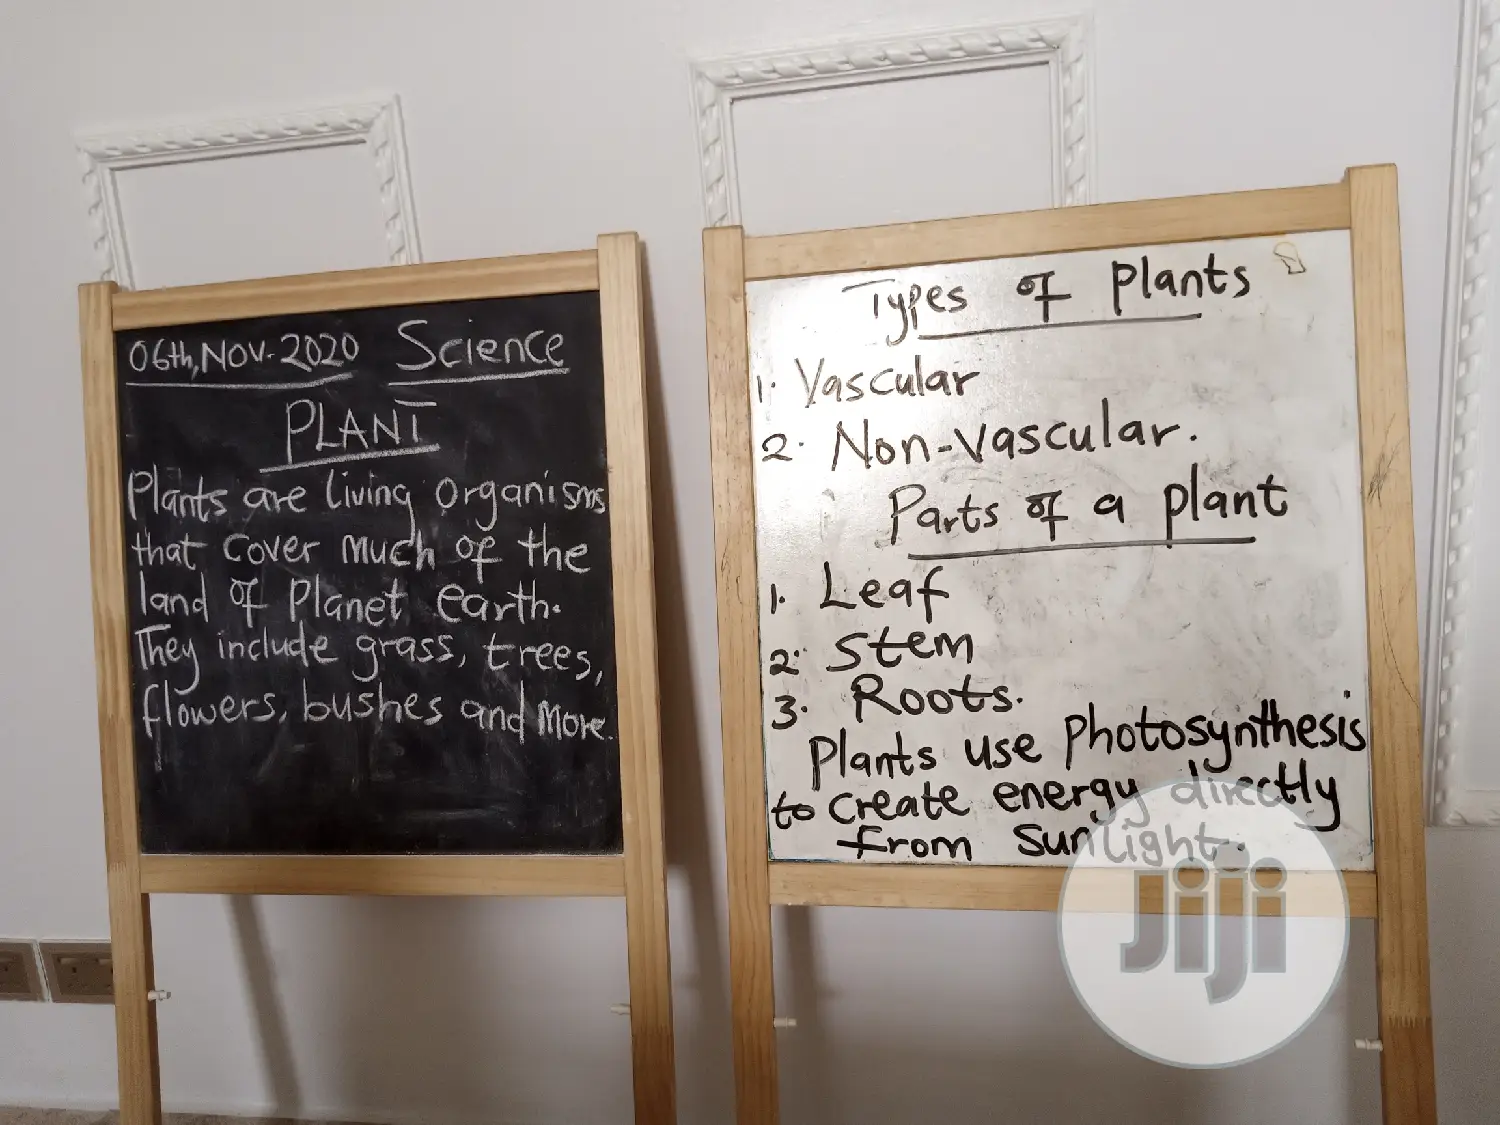 06th, NOV. 2020 Science
PLANT
Plants are living organisms
that cover much of the
land of Planet earth.
They include grass, trees,
flowers, bushes and more.
Types of plants
1. Vascular
2. Non-vascular.
Parts of a plant
1. Leaf
2. Stem
3. Roots.
Plants use photosynthesis
to create energy directly
from sunlight.
JiJi